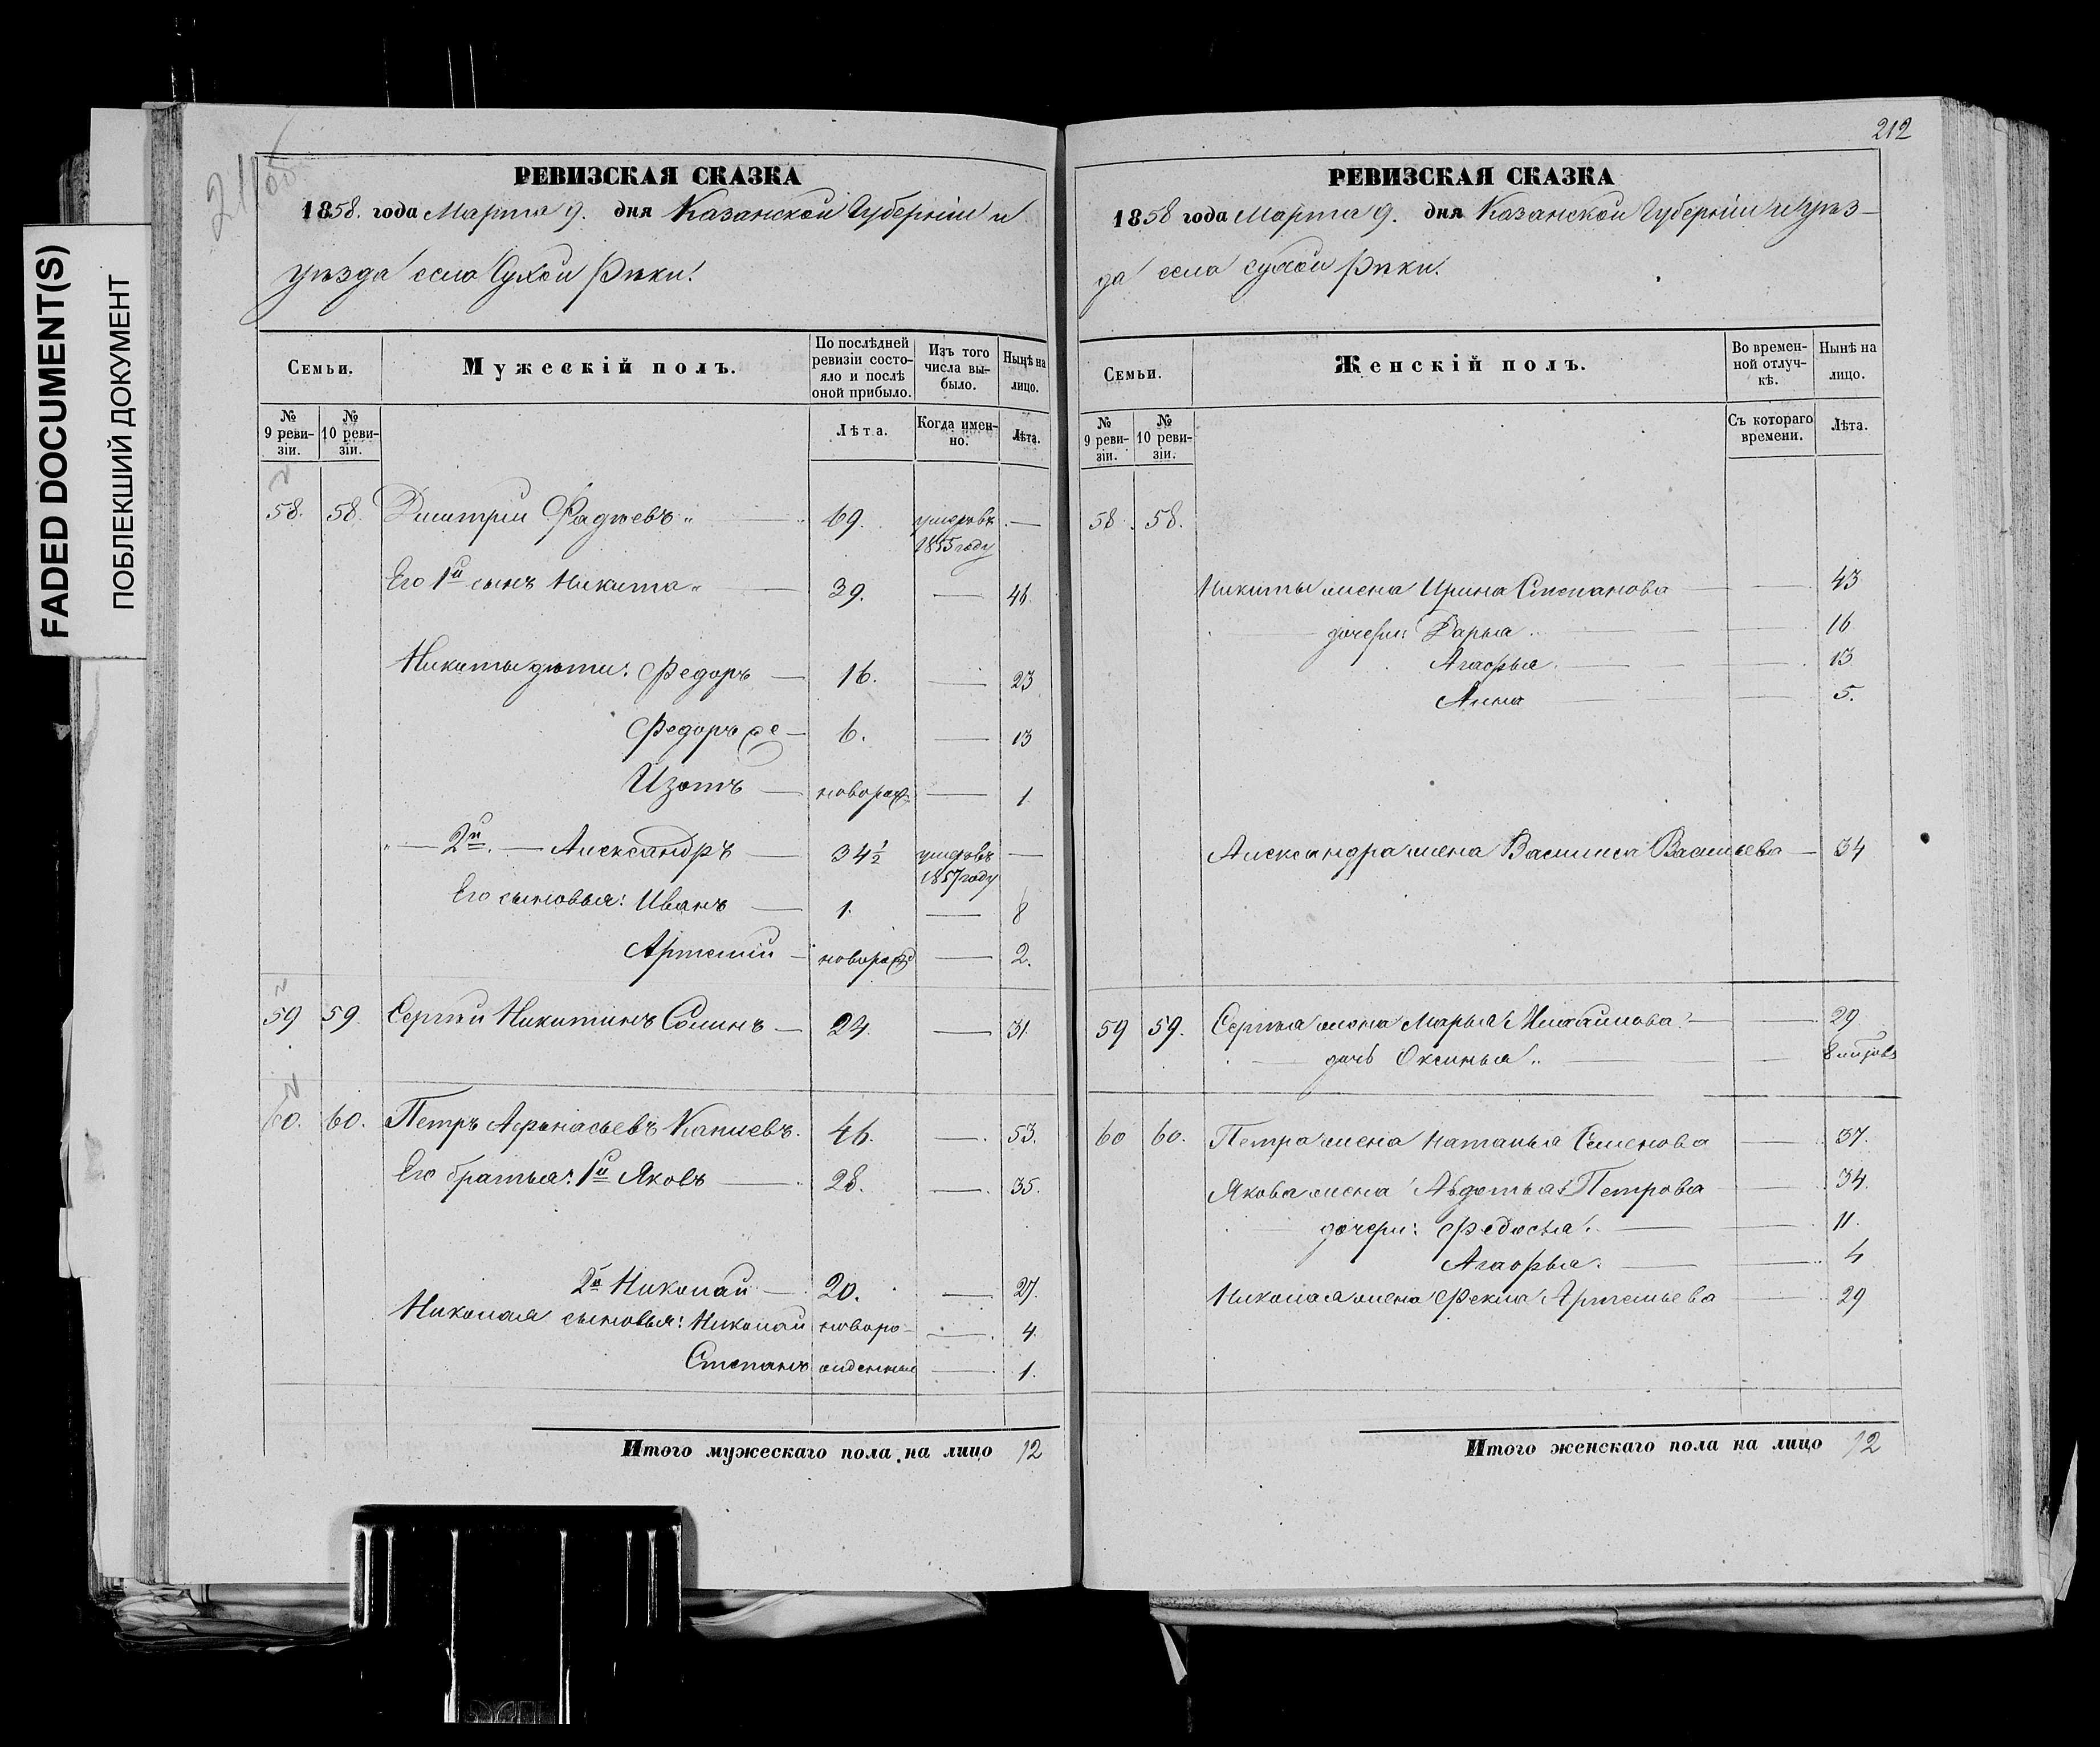 FADED DOCUMENT(S)
ПОБЛЕКШИЙ ДОКУМЕНТ
РЕВИЗСКАЯ СКАЗКА
1858. года Марта 9. дня Казанской Губерніи и
уѣзда села Сухой Рѣки.
Семьи.
Мужескій полъ.
По послѣдней ревизіи состояло и послѣ оной прибыло.
Изъ того числа выбыло.
Нынѣ на лицо.
№ 9 ревизіи.
№ 10 ревизіи.
Лѣта.
Когда именно.
Лѣта.
58. 58. Дмитрій Фадѣевъ 69. умеръ въ 1855 году
Его 1й сынъ Никита 39. 46.
Никиты дѣти: Федоръ 16. 23
Федоръ же 6. 13
Изотъ новорож 1
2й. Александръ 34½ умеръ въ 1857 году
Его сыновья: Иванъ 1. 8
Артемій новорожд 2.
59 59. Сергѣй Никитинъ 24. 31
60. 60. Петръ Афонасьевъ 46. 53.
Его братья: 1й Яковъ 28. 35.
2й Николай 20. 27.
Николая сыновья: Николай новоро- 4.
Степанъ жденные 1.
Итого мужескаго пола на лицо 12
212
РЕВИЗСКАЯ СКАЗКА
1858 года Марта 9. дня Казанской Губерніи и уѣз-
да села Сухой Рѣки.
Семьи.
Женскій полъ.
Во временной отлучкѣ.
Нынѣ на лицо.
№ 9 ревизіи.
№ 10 ревизіи.
Съ котораго времени.
Лѣта.
58. 58.
Никиты жена Ирина Степанова 43
дочери: Дарья 16
Агафья 13
Анна 5.
Александра жена Василиса Васильева 34
59 59. Сергѣя жена Марья Михайлова 29
дочь Оксинья
60 60. Петра жена Наталья Семенова 37.
Якова жена Авдотья Петрова 34.
дочери: Федосья 11.
Агафья 4
Николая жена Фекла Артемьева 29
Итого женскаго пола на лицо 12